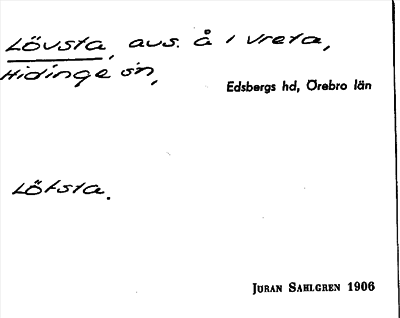 Lövsta, avs. å i Vreta,
Hidinge sn,
Edsbergs hd, Örebro län
Löfsta.
Juran Sahlgren 1906